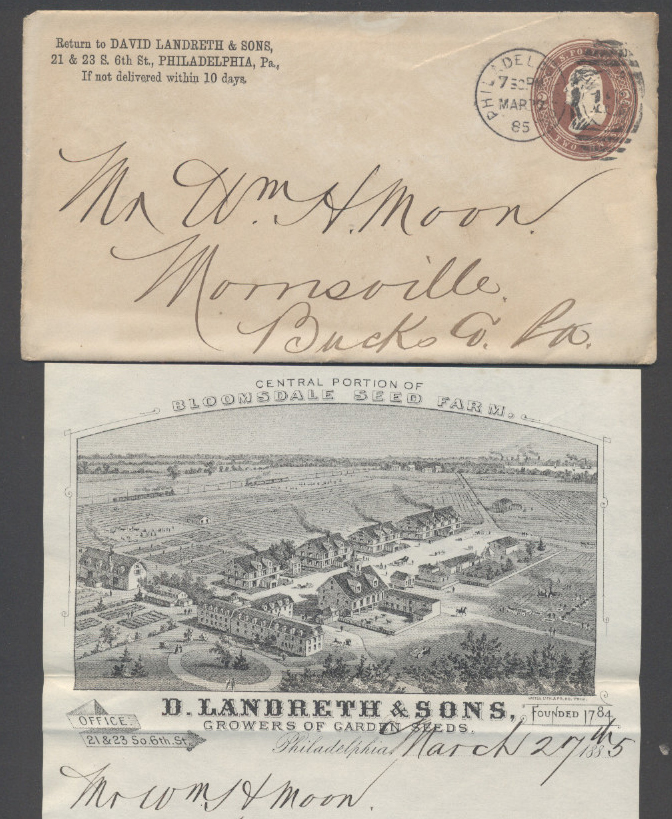 Return to DAVID LANDRETH & SONS,
21 & 23 S. 6th St., PHILADELPHIA, Pa.,
If not delivered within 10 days.
PHILADEL
7 30PM
MAR
85
Mr Wm H. Moon.
Morrisville.
Bucks Co. Pa.
CENTRAL PORTION OF
BLOOMSDALE SEED FARM.
D. LANDRETH & SONS,
FOUNDED 1784
GROWERS OF GARDEN SEEDS.
OFFICE
21 & 23 So. 6th. St.
Philadelphia March 27th 1885
Mr Wm H Moon.